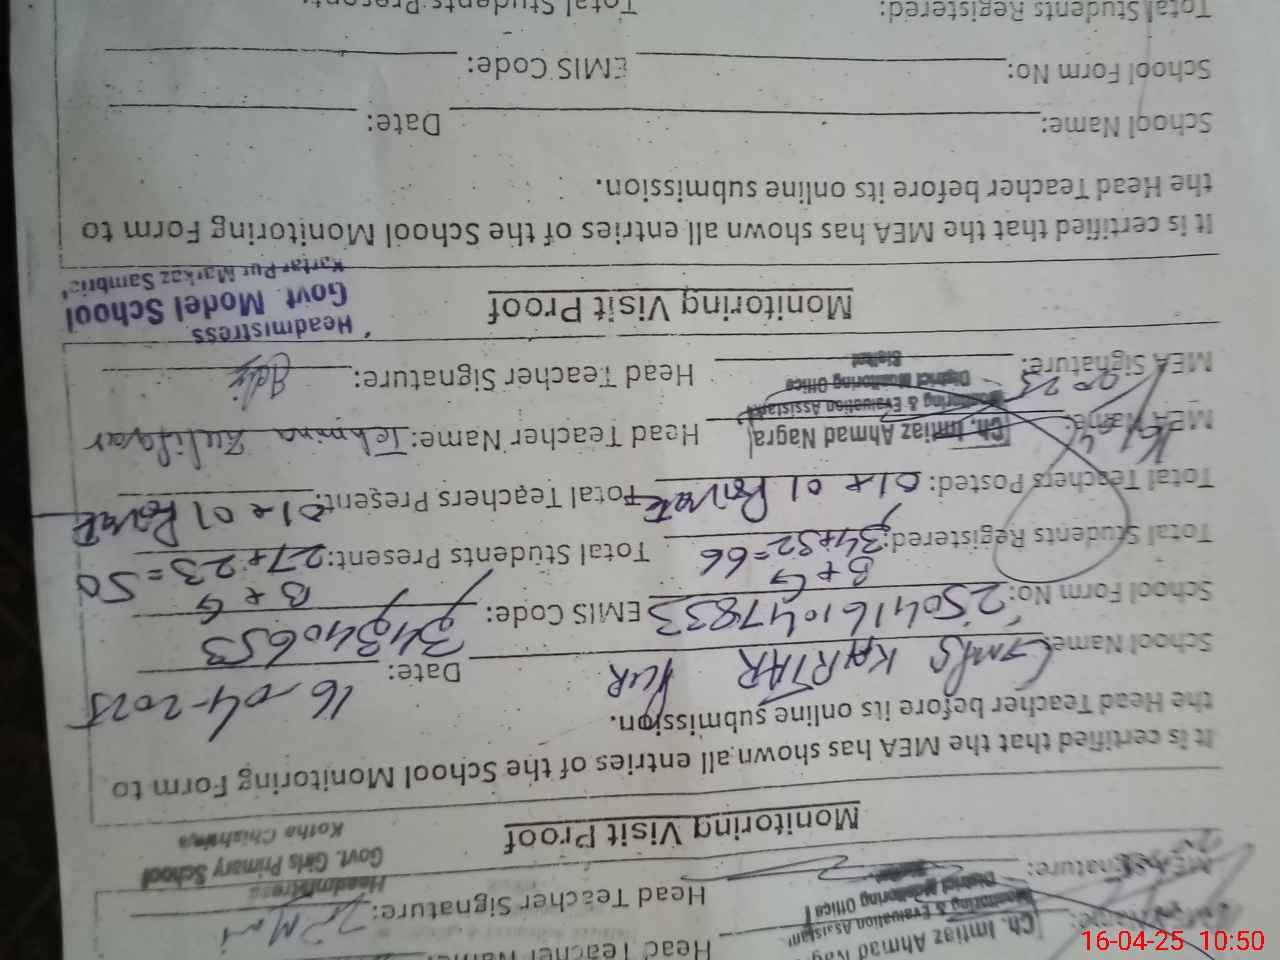 Head Teacher Name:
Ch. Imtiaz Ahmad Nagra
Monitoring & Evaluation Assistant
District Monitoring Office
MEA Signature: Head Teacher Signature:
Headmistress
Govt. Girls Primary School
Kotha
Monitoring Visit Proof
It is certified that the MEA has shown all entries of the School Monitoring Form to
the Head Teacher before its online submission.
School Name: GMPS KARTAR PUR Date: 16-04-2025
School Form No: 2504161047833 EMIS Code: 34340653
B + G B + G
Total Students Registered: 34+32=66 Total Students Present: 27+23=50
Total Teachers Posted: 01+01 Private Total Teachers Present: 01+01 Private
MEA Name: Ch. Imtiaz Ahmad Nagra Head Teacher Name: Tehmina Zulifqar
Monitoring & Evaluation Assistant
District Monitoring Office
Sialkot
MEA Signature: Head Teacher Signature:
Headmistress
Govt. Model School
Kartar Pur Markaz
Monitoring Visit Proof
It is certified that the MEA has shown all entries of the School Monitoring Form to
the Head Teacher before its online submission.
School Name: Date:
School Form No: EMIS Code:
Total Students Registered: Total Students Present:
16-04-25 10:50